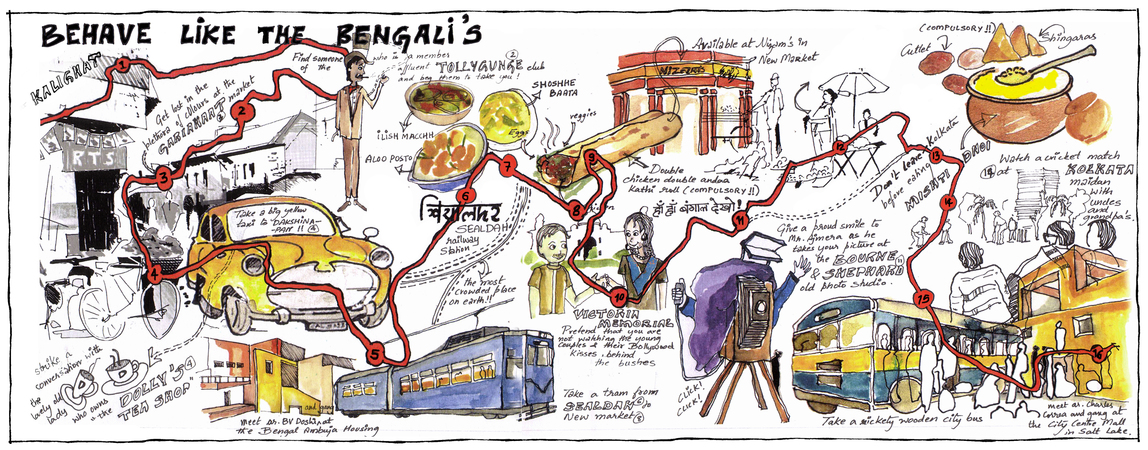 BEHAVE LIKE THE BENGALI'S
KALIGHAT
1
Get lost in the
plethora of colours at the
GARIAHAAT market
2
3
RTS
4
Find someone
of the
who is a member
affluent TOLLYGUNGE club
and beg them to take you!
2
ILISH MACCHH
ALOO POSTO
SHOSHHE
BAATA
Eggs
veggies
Take a big yellow
taxi to "DAKSHINA-
PAN"!! 4
strike a
conversation with
the
lovely old
lady who owns
the "DOLLY'S 4
TEA SHOP"
5
meet Mr. BV Doshi at
the Bengal Ambuja Housing
6
7
सियालदह
SEALDAH
railway
Station
the most
crowded place
on earth!!
Take a tram from
SEALDAH 6 to
New market 8
Available at Nizam's in
New Market
NIZAM'S
8
9
Double
chicken double andaa
Kathi roll (COMPULSORY!!)
हाँ हाँ बंगाल देखो!
10
VICTORIA
MEMORIAL
Pretend that you are
not watching the young
couples & their Bollywood
Kisses, behind
the bushes
11
CLICK!
CLICK!
Give a proud smile to
Mr. Ajmera as he
takes your picture at
the BOURNE 11
& SHEPHARD
old photo studio.
12
(COMPULSORY!!)
Cutlet
Shingaras
DHOI
Don't leave Kolkata
before eating
MISHTI
13
14
Watch a cricket match
14 at KOLKATA
maidan
with
uncles
and
grandpa's.
15
16
Take a rickety wooden city bus
meet ar. Charles
Correa and gang at
the City Centre Mall
in Salt Lake.